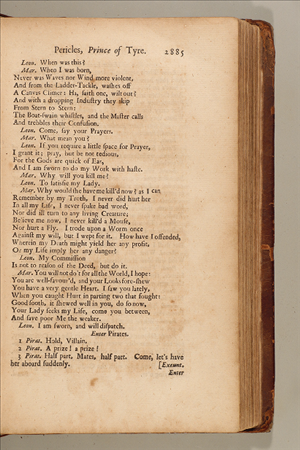 Pericles, Prince of Tyre. 2885
Leon. When was this?
Mar. When I was born,
Never was Waves nor Wind more violent,
And from the Ladder-Tackle, washes off
A Canvas Climer: Ha, saith one, wilt out?
And with a dropping Industry they skip
From Stern to Stern:
The Boat-swain whistles, and the Master calls
And trebbles their Confusion.
Leon. Come, say your Prayers.
Mar. What mean you?
Leon. If you require a little space for Prayer,
I grant it; pray, but be not tedious,
For the Gods are quick of Ear,
And I am sworn to do my Work with haste.
Mar. Why will you kill me?
Leon. To satisfie my Lady.
Mar. Why would she have me kill'd now? as I can
Remember by my Troth, I never did hurt her
In all my Life, I never spake bad word,
Nor did ill turn to any living Creature;
Believe me now, I never kill'd a Mouse,
Nor hurt a Fly. I trode upon a Worm once
Against my will, but I wept for it. How have I offended,
Wherein my Death might yield her any profit,
Or my Life imply her any danger?
Leon. My Commission
Is not to reason of the Deed, but do it.
Mar. You will not do't for all the World, I hope:
You are well-favour'd, and your Looks fore-shew
You have a very gentle Heart. I saw you lately,
When you caught Hurt in parting two that fought:
Good sooth, it shewed well in you, do so now,
Your Lady seeks my Life, come you between,
And save poor Me the weaker.
Leon. I am sworn, and will dispatch.
Enter Pirates.
1 Pirat. Hold, Villain.
2 Pirat. A prize! a prize!
3 Pirat. Half part, Mates, half part. Come, let's have
her aboard suddenly. [Exeunt.
Enter